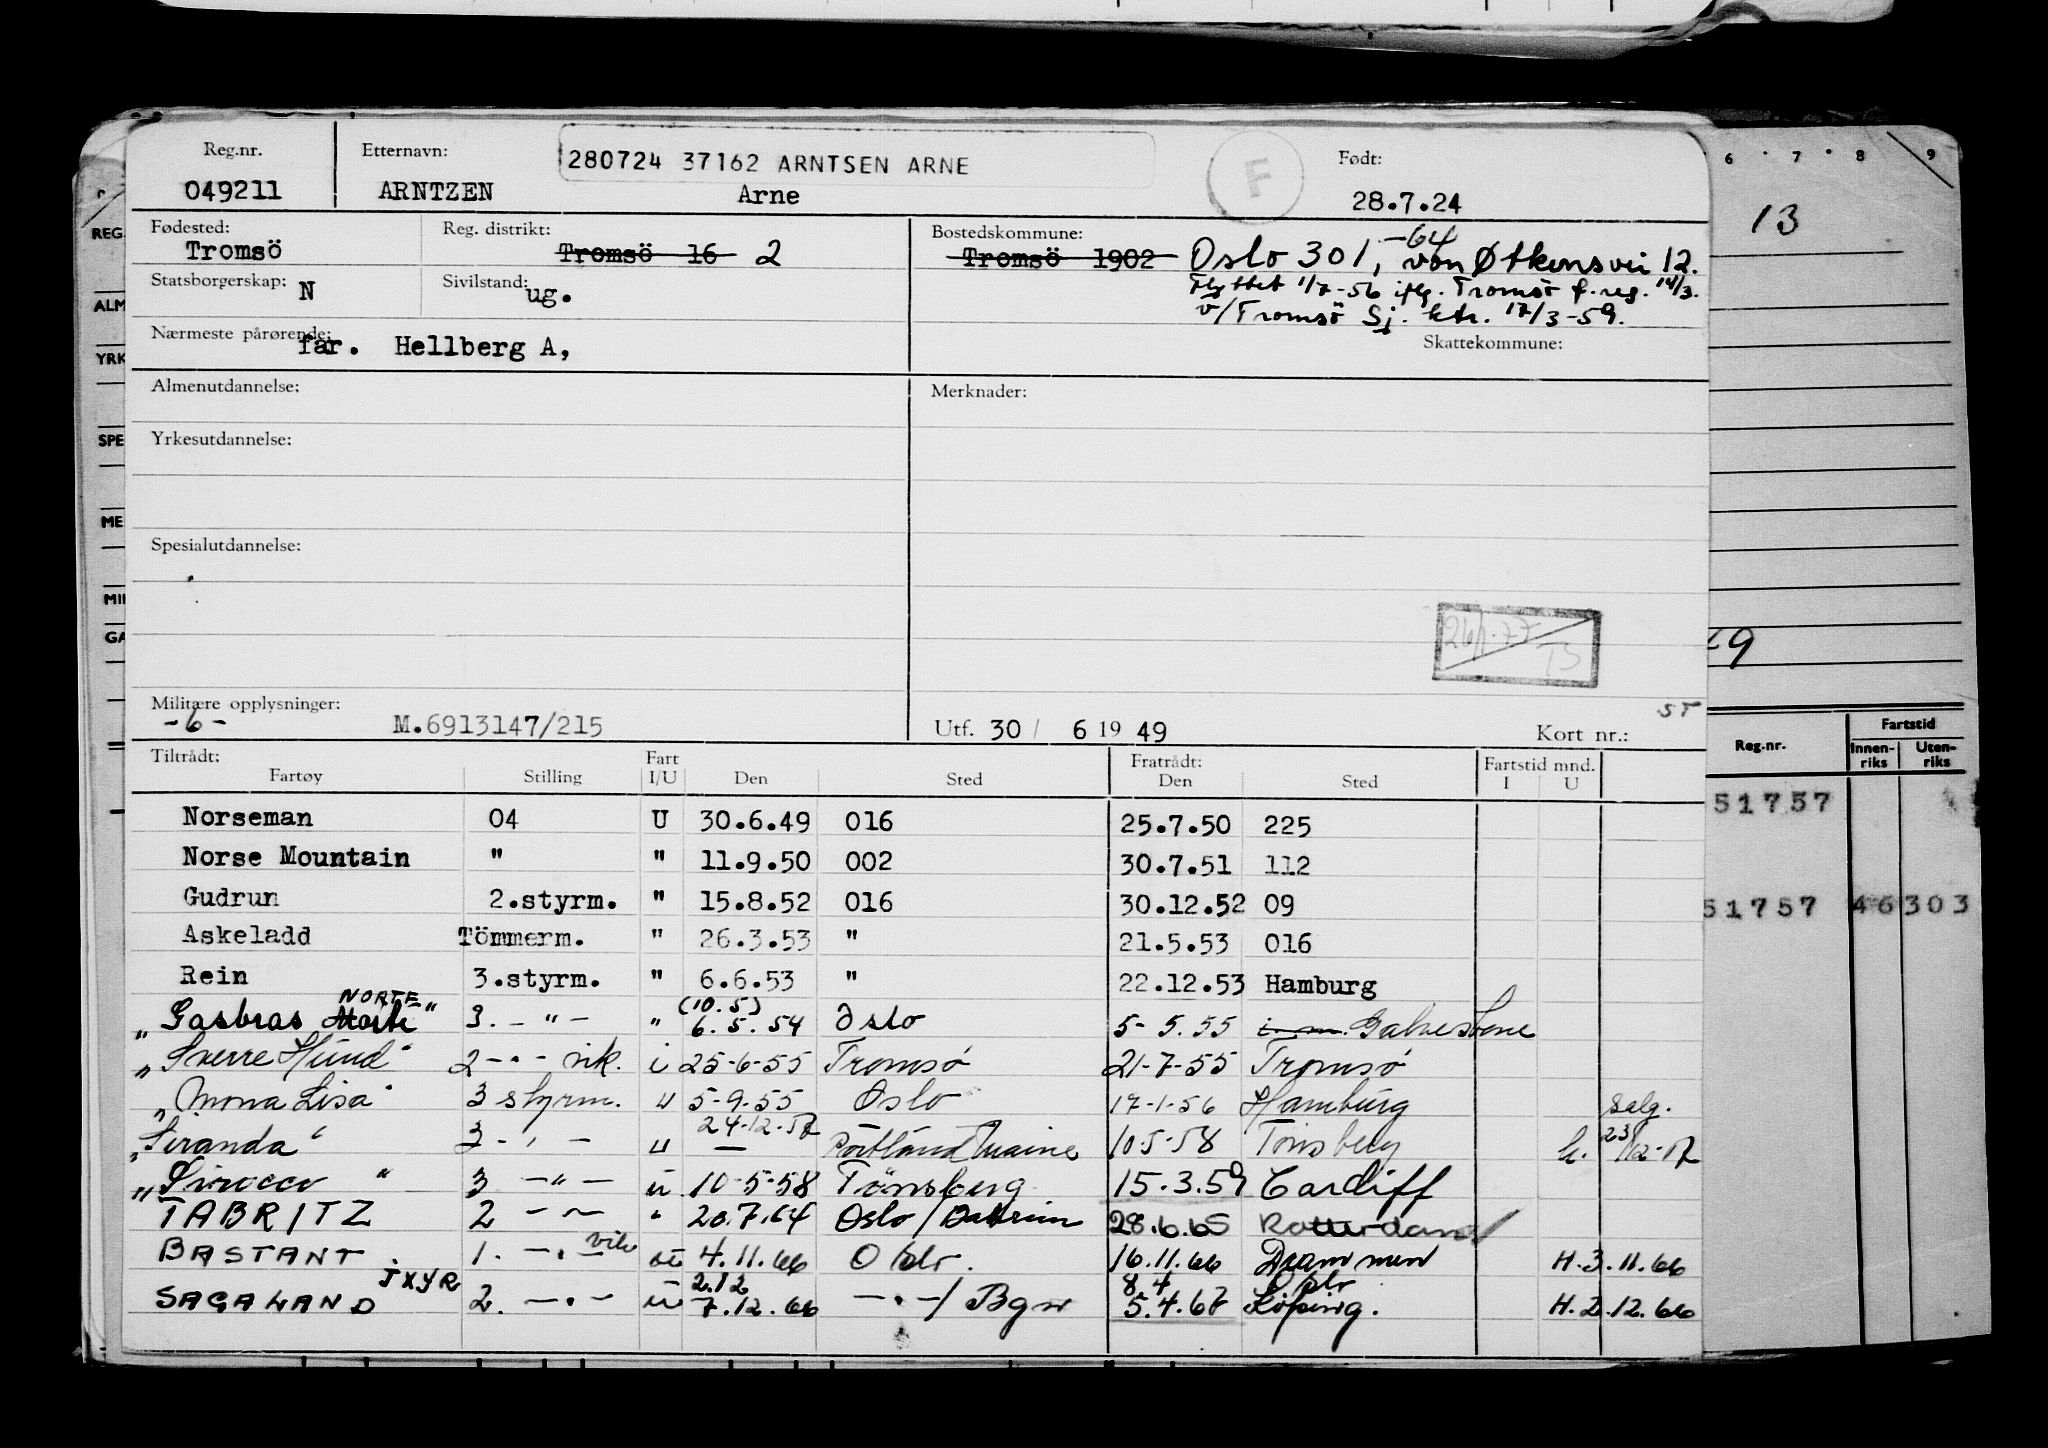 6 7 8 9
Reg.nr. Etternavn: 280724 37162 ARNTSEN ARNE F Født:
049211 ARNTZEN Arne 28.7.24
13
Fødested: Reg. distrikt: Bostedskommune: -64
Tromsö Tromsö 16 2 Tromsö 1902 Oslo 301, von Øtkensvei 12.
Statsborgerskap: N Sivilstand: ug. Flyttet 1/7-56 iflg. Tromsø f.reg. 14/3.
v/Tromsö Sj. ktr. 17/3-59.
Nærmeste pårørende: far. Hellberg A, Skattekommune:
Almenutdannelse: Merknader:
Yrkesutdannelse:
Spesialutdannelse:
26/1-77 TS
Militære opplysninger: ST
-6- M.6913147/215 Utf. 30/ 6 19 49 Kort nr.:
Tiltrådt: Fart Fratrådt: Fartstid mnd.
Fartøy Stilling I/U Den Sted Den Sted I U
Norseman 04 U 30.6.49 016 25.7.50 225
Norse Mountain " " 11.9.50 002 30.7.51 112
Gudrun 2.styrm. " 15.8.52 016 30.12.52 09
Askeladd Tömmerm. " 26.3.53 " 21.5.53 016
Rein 3.styrm. " 6.6.53 " 22.12.53 Hamburg
NORTE (10.5)
"Gasbras Norte" 3. - " - " 6.5.54 Oslo 5-5.55 i.m. Galvestone
"Sverre Hund" 2 - " - vik. i 25-6-55 Tromsö 21-7-55 Tromsö
"Mona Lisa" 3 styrm. u 5-9-55 Oslo 17-1-56 Hamburg salg.
24-12-57
"Siranda" 3 - " - u — Portland Maine 10-5-58 Tönsberg h. 23/12-57
"Sirocco" 3 - " - u 10-5-58 Tönsberg 15.3.59 Cardiff
TABRITZ 2 - " - " 20.7.64 Oslo/ 28.6.65 Rotterdam
BASTANT 1. - " - vik u 4.11.66 Oslo. 16.11.66 Drammen H.3.11.66
JXYR 2.12 8.4 Oslo
SAGALAND 2. - " - u 7.12.66 - " -/Bgn 5.4.67 H.2.12.66
REG.
ALM
YRK
SPE
ME
MIL
GA
Fartstid
Reg.nr. Innen-riks Uten-riks
51757
51757 46 303